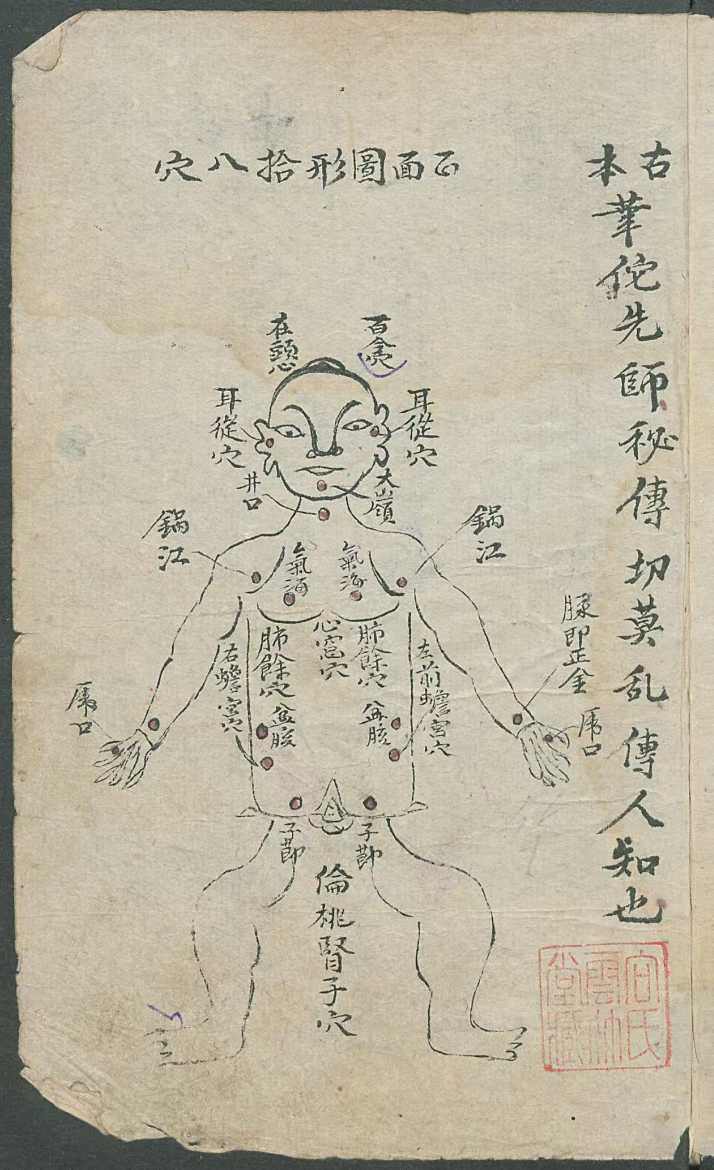 古本華佗先師秘傳切莫乱傳人知也
正面圖形拾八穴
百會
在頭心
耳從穴
耳從穴
大嶺
井口
鍋江
鍋江
氣海
氣海
心窩穴
肺餘穴
肺餘穴
脉即正金
左前蟾宮穴
右蟾宮穴
盆胲
盆胲
虎口
虎口
子節
子節
倫桃腎子穴